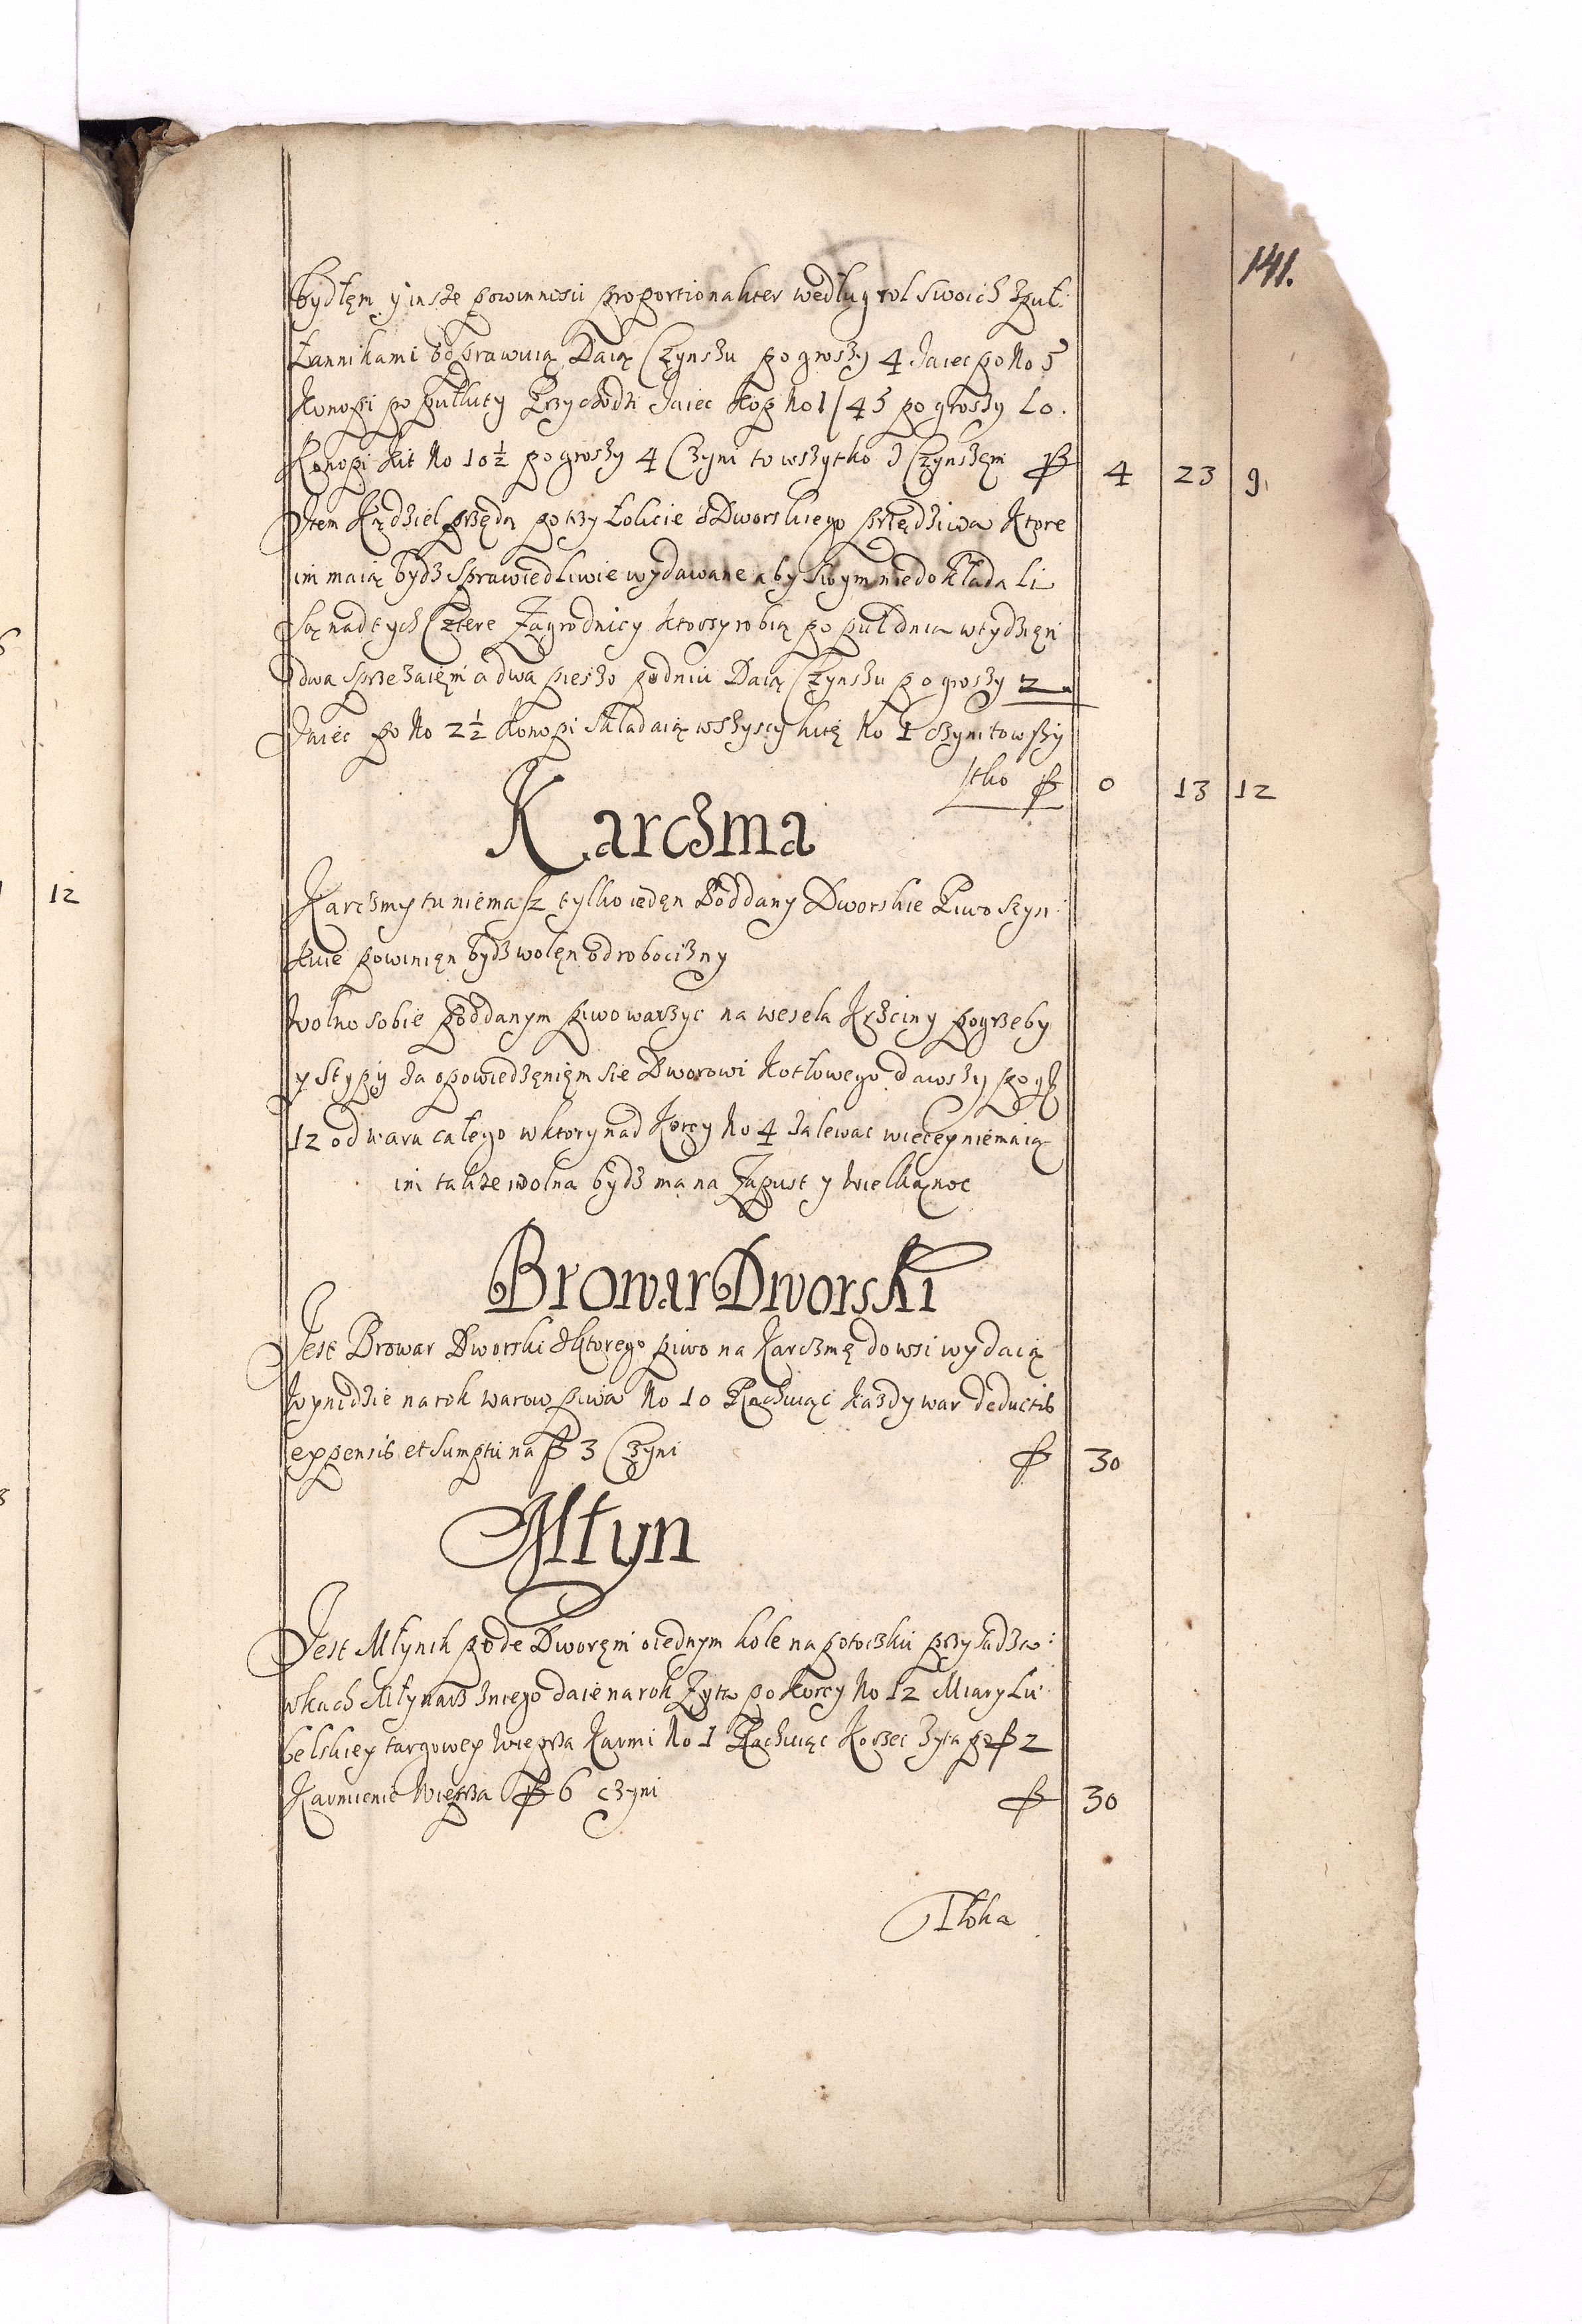 141.
bydłęm y insze powinnosci proportionaliter według rol swoich z puł:
łannikami odprawuią Daią Czynszu po groszy 4 Jaiec po No 5
Konopi po pułkity Przychodzi Jaiec Kop No 1/45 po groszy 20.
Konopi kit No 10½ po groszy 4 Czyni to wszytko z Czynszęm fl 4 23 9
Item Kądziel przędą po trzy łokcie z Dworskiego przędziwa Ktore
im maią bydz sprawiedliwie wydawane aby swym niedokłada li
Są nad tych Cztere Zagrodnicy ktorzy robią po puł dnia w tydzięn
dwa sprzezaięm a dwa pieszo podniu Daią Czynszu po groszy 2
Jaiec po No 2½ Konopi składaią wszyscy kitę No 1 czyni to wszy
stko fl 0 13 12
Karczma
Karczmy tu niemasz tylko iedęn Poddany Dworskie Piwo szyn:
kuie powinięn bydz wolęn od robocizny
Wolno sobie poddanym piwo warzyc na wesela Krzciny pogrzeby
y Stypy za opowiedzęnięm sie Dworowi Kotłowego dawszy po g
12 od waru całego w ktory nad Korcy No 4 zalewac więcey niemaią
im takze wolna bydz ma na Zapust y Wielkąnoc
Browar Dworski
Jest Browar Dworski z ktorego piwo na Karczmę do wsi wydaią
Wynidzie na rok warow piwa No 10 Rachuiąc kazdy war deductis
expensis et sumptu na fl 3 Czyni fl 30
Młyn
Jest Młynik pode Dworęm o iednym kole na potoczku przy sadza:
wkach Młynarz z niego daie na rok Zyta po Korcy No 12 Miary Lu:
belskiey targowey Wieprza Karmi No 1 Rachuiąc Korzec zyta po fl 2
Karmienie Wieprza fl 6 czyni fl 30
Tłoka
12